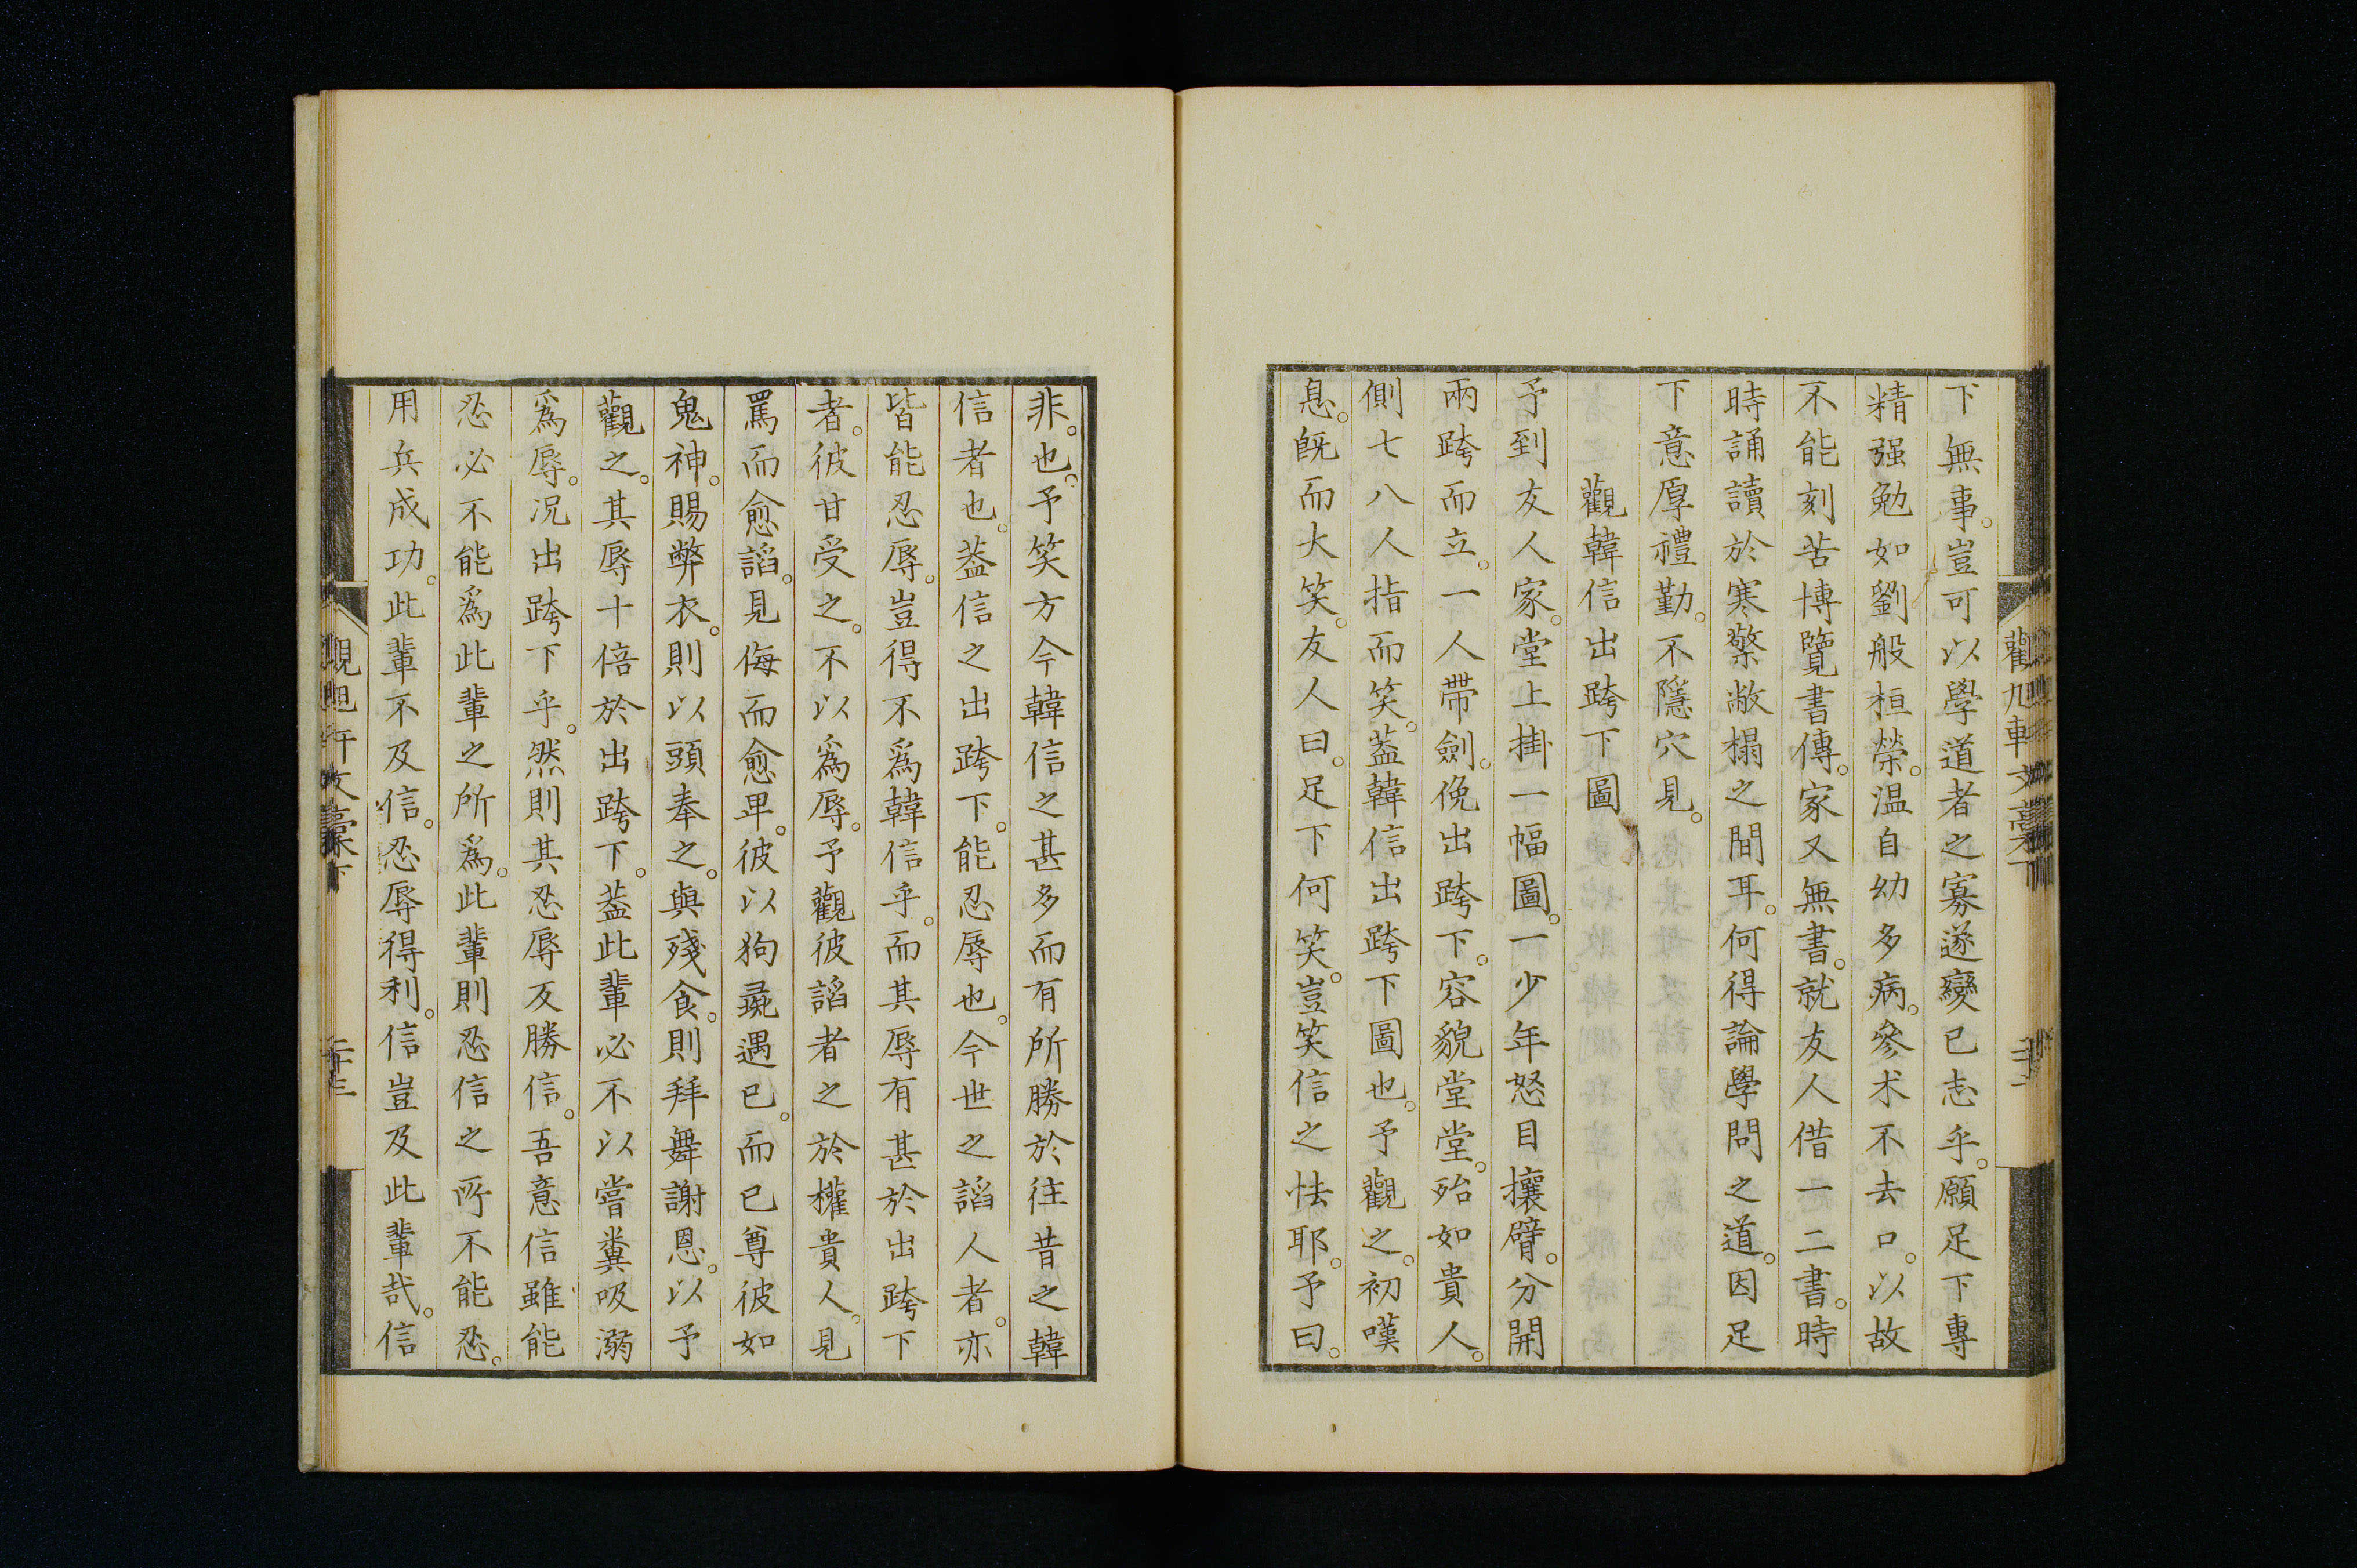 下無事。豈可以學道者之寡遂變己志乎。願足下專
精强勉如劉般桓榮。温自幼多病。參朮不去口。以故
不能刻苦博覽書傳。家又無書。就友人借一二書。時
時誦讀於寒檠敝榻之間耳。何得論學問之道。因足
下意厚禮勤。不隱穴見。
觀韓信出跨下圖
予到友人家。堂上掛一幅圖。一少年怒目攘臂。分開
兩跨而立。一人帶劍。俛出跨下。容貌堂堂。殆如貴人。
側七八人指而笑。葢韓信出跨下圖也。予觀之。初嘆
息。旣而大笑。友人曰。足下何笑。豈笑信之怯耶。予曰。
非也。予笑方今韓信之甚多而有所勝於往昔之韓
信者也。葢信之出跨下。能忍辱也。今世之謟人者。亦
皆能忍辱。豈得不爲韓信乎。而其辱有甚於出跨下
者。彼甘受之。不以爲辱。予觀彼謟者之於權貴人。見
罵而愈謟。見侮而愈卑。彼以狗彘遇已。而已尊彼如
鬼神。賜弊衣。則以頭奉之。與殘食。則拜舞謝恩。以予
觀之。其辱十倍於出跨下。葢此輩必不以嘗糞吸溺
爲辱。况出跨下乎。然則其忍辱反勝信。吾意信雖能
忍必不能爲此輩之所爲。此輩則忍信之所不能忍。
用兵成功。此輩不及信。忍辱得利。信豈及此輩哉。信
觀旭軒文稾下